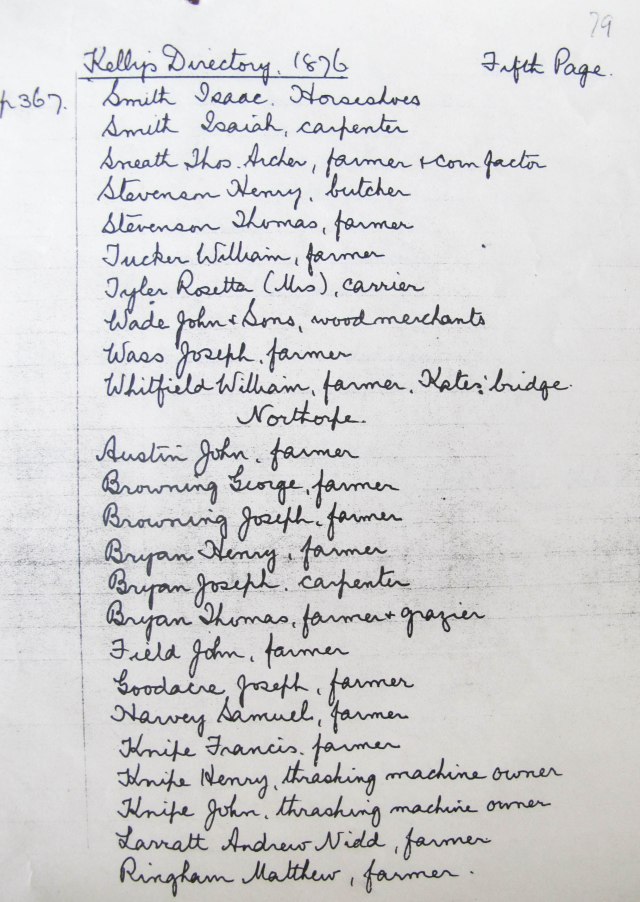 79
Kelly's Directory. 1876 Fifth Page.
p367. Smith Isaac. Horseshoes
Smith Isaiah, carpenter
Sneath Thos. Archer, farmer + corn factor
Stevenson Henry, butcher
Stevenson Thomas, farmer
Tucker William, farmer
Tyler Rosetta (Mrs), carrier
Wade John & Sons, wood merchants
Wass Joseph, farmer
Whitfield William, farmer. Kates' bridge.
Northorpe.
Austin John, farmer
Browning George, farmer
Browning Joseph, farmer
Bryan Henry, farmer
Bryan Joseph. carpenter
Bryan Thomas, farmer + grazier
Field John, farmer
Goodacre Joseph, farmer
Harvey Samuel, farmer
Knipe Francis. farmer
Knipe Henry, thrashing machine owner
Knipe John. thrashing machine owner
Larratt Andrew Nidd, farmer
Ringham Matthew, farmer.